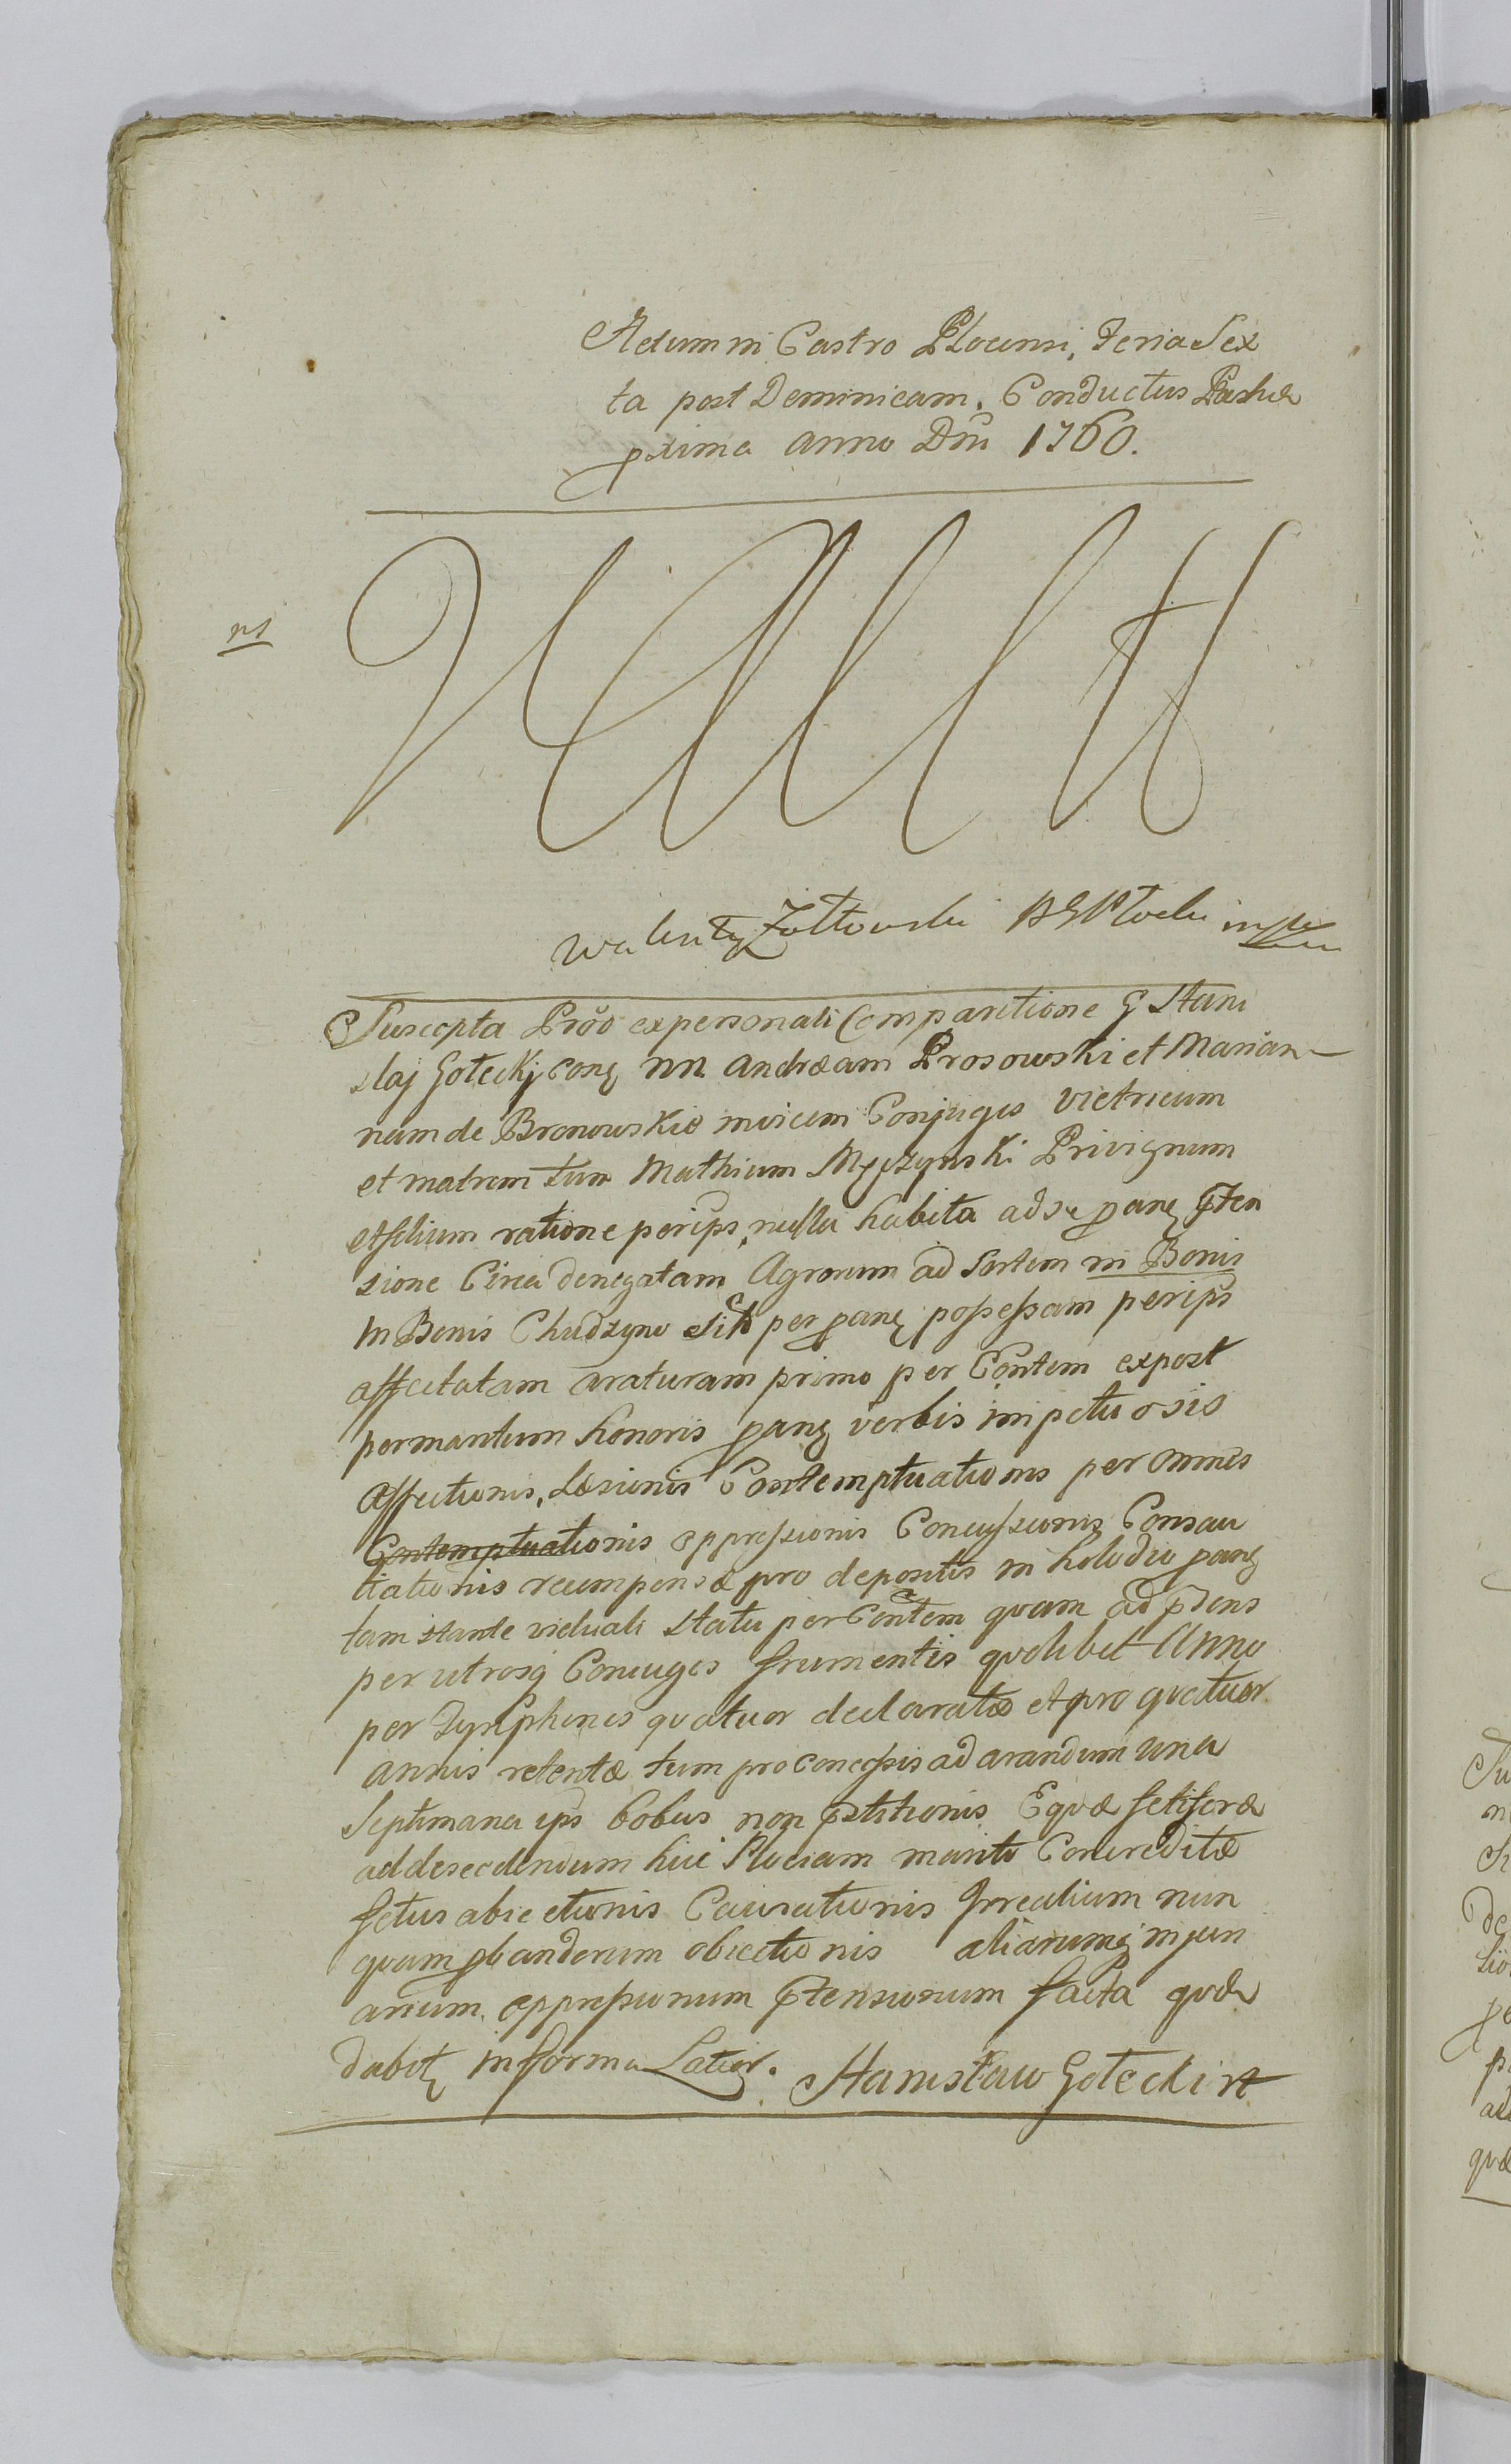 Actum in Castro Plocensi, Feria Sex
ta post Dominicam. Conductus Paschæ
pxima Anno Dni 1760.
Walenty Zołtowski BGPłocki
Suscepta Prõo expersonali Comparitione G Stani
slaj Gołeckj conq NN Andræam Prosowski et Marian
nam de Bronowskie invicem Conjuges vietricum
et matrem tum Mathium Męczynski Privignum
etfilium ratione perips, nulla habita ad se pang pten
sione Circa denegatam Agrorum ad Sortem in Bonis
in Bonis Chudzyno sitt per pang possessam perips
affectatam araturam primo per Contem expost
permantum honoris pang verbis impetuosis
Affectionis, Læsionis Contemptuationis per omnes
Contemptuationis oppressionis Concussionis Consau
tiationis recumpensæ pro depositis in holodio pang
tam stante viduali statu per Contem quam ad pdens
per utrosq Coniuges frumentis quolibet Anno
per Tymphones quatuor declaratæ et pro quatuor
annis retentæ tum pro concessis ad arandum una
Septimana ips bobus non pstitionis Equæ fetiferæ
addesecdendum huc Plociam marito Concreditæ
fetus abiectionis Causationis Irrealium nun
quam pbandorum obiectionis aliarumq injuri
arium. oppressionum ptensionum facta quæ
dabitq informa Latior. Stanisław Gołecki